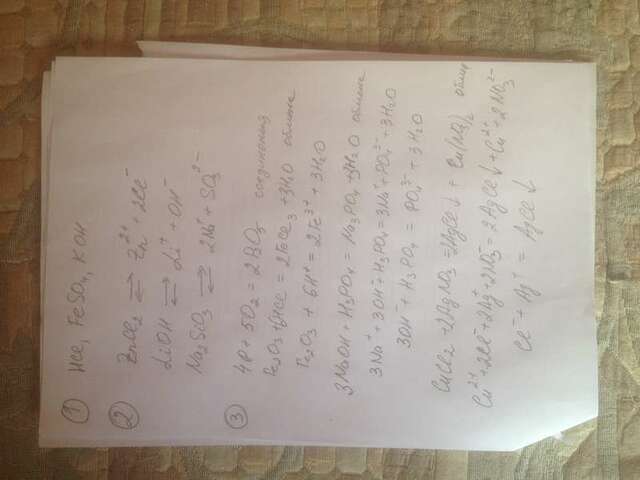 ① HCl, FeSO₄, KOH
② ZnCl₂ ⇄ Zn²⁺ + 2Cl⁻
LiOH ⇄ Li⁺ + OH⁻
Na₂SiO₃ ⇄ 2Na⁺ + SO₃²⁻
③ 4P + 5O₂ = 2P₂O₅ соединения
Fe₂O₃ + 6HCl = 2FeCl₃ + 3H₂O обмена
Fe₂O₃ + 6H⁺ = 2Fe³⁺ + 3H₂O
3NaOH + H₃PO₄ = Na₃PO₄ + 3H₂O обмена
3Na⁺ + 3OH⁻ + H₃PO₄ = 3Na⁺ + PO₄³⁻ + 3H₂O
3OH⁻ + H₃PO₄ = PO₄³⁻ + 3H₂O
CuCl₂ + 2AgNO₃ = 2AgCl↓ + Cu(NO₃)₂ обмен
Cu²⁺ + 2Cl⁻ + 2Ag⁺ + 2NO₃⁻ = 2AgCl↓ + Cu²⁺ + 2NO₃²⁻
Cl⁻ + Ag⁺ = AgCl↓